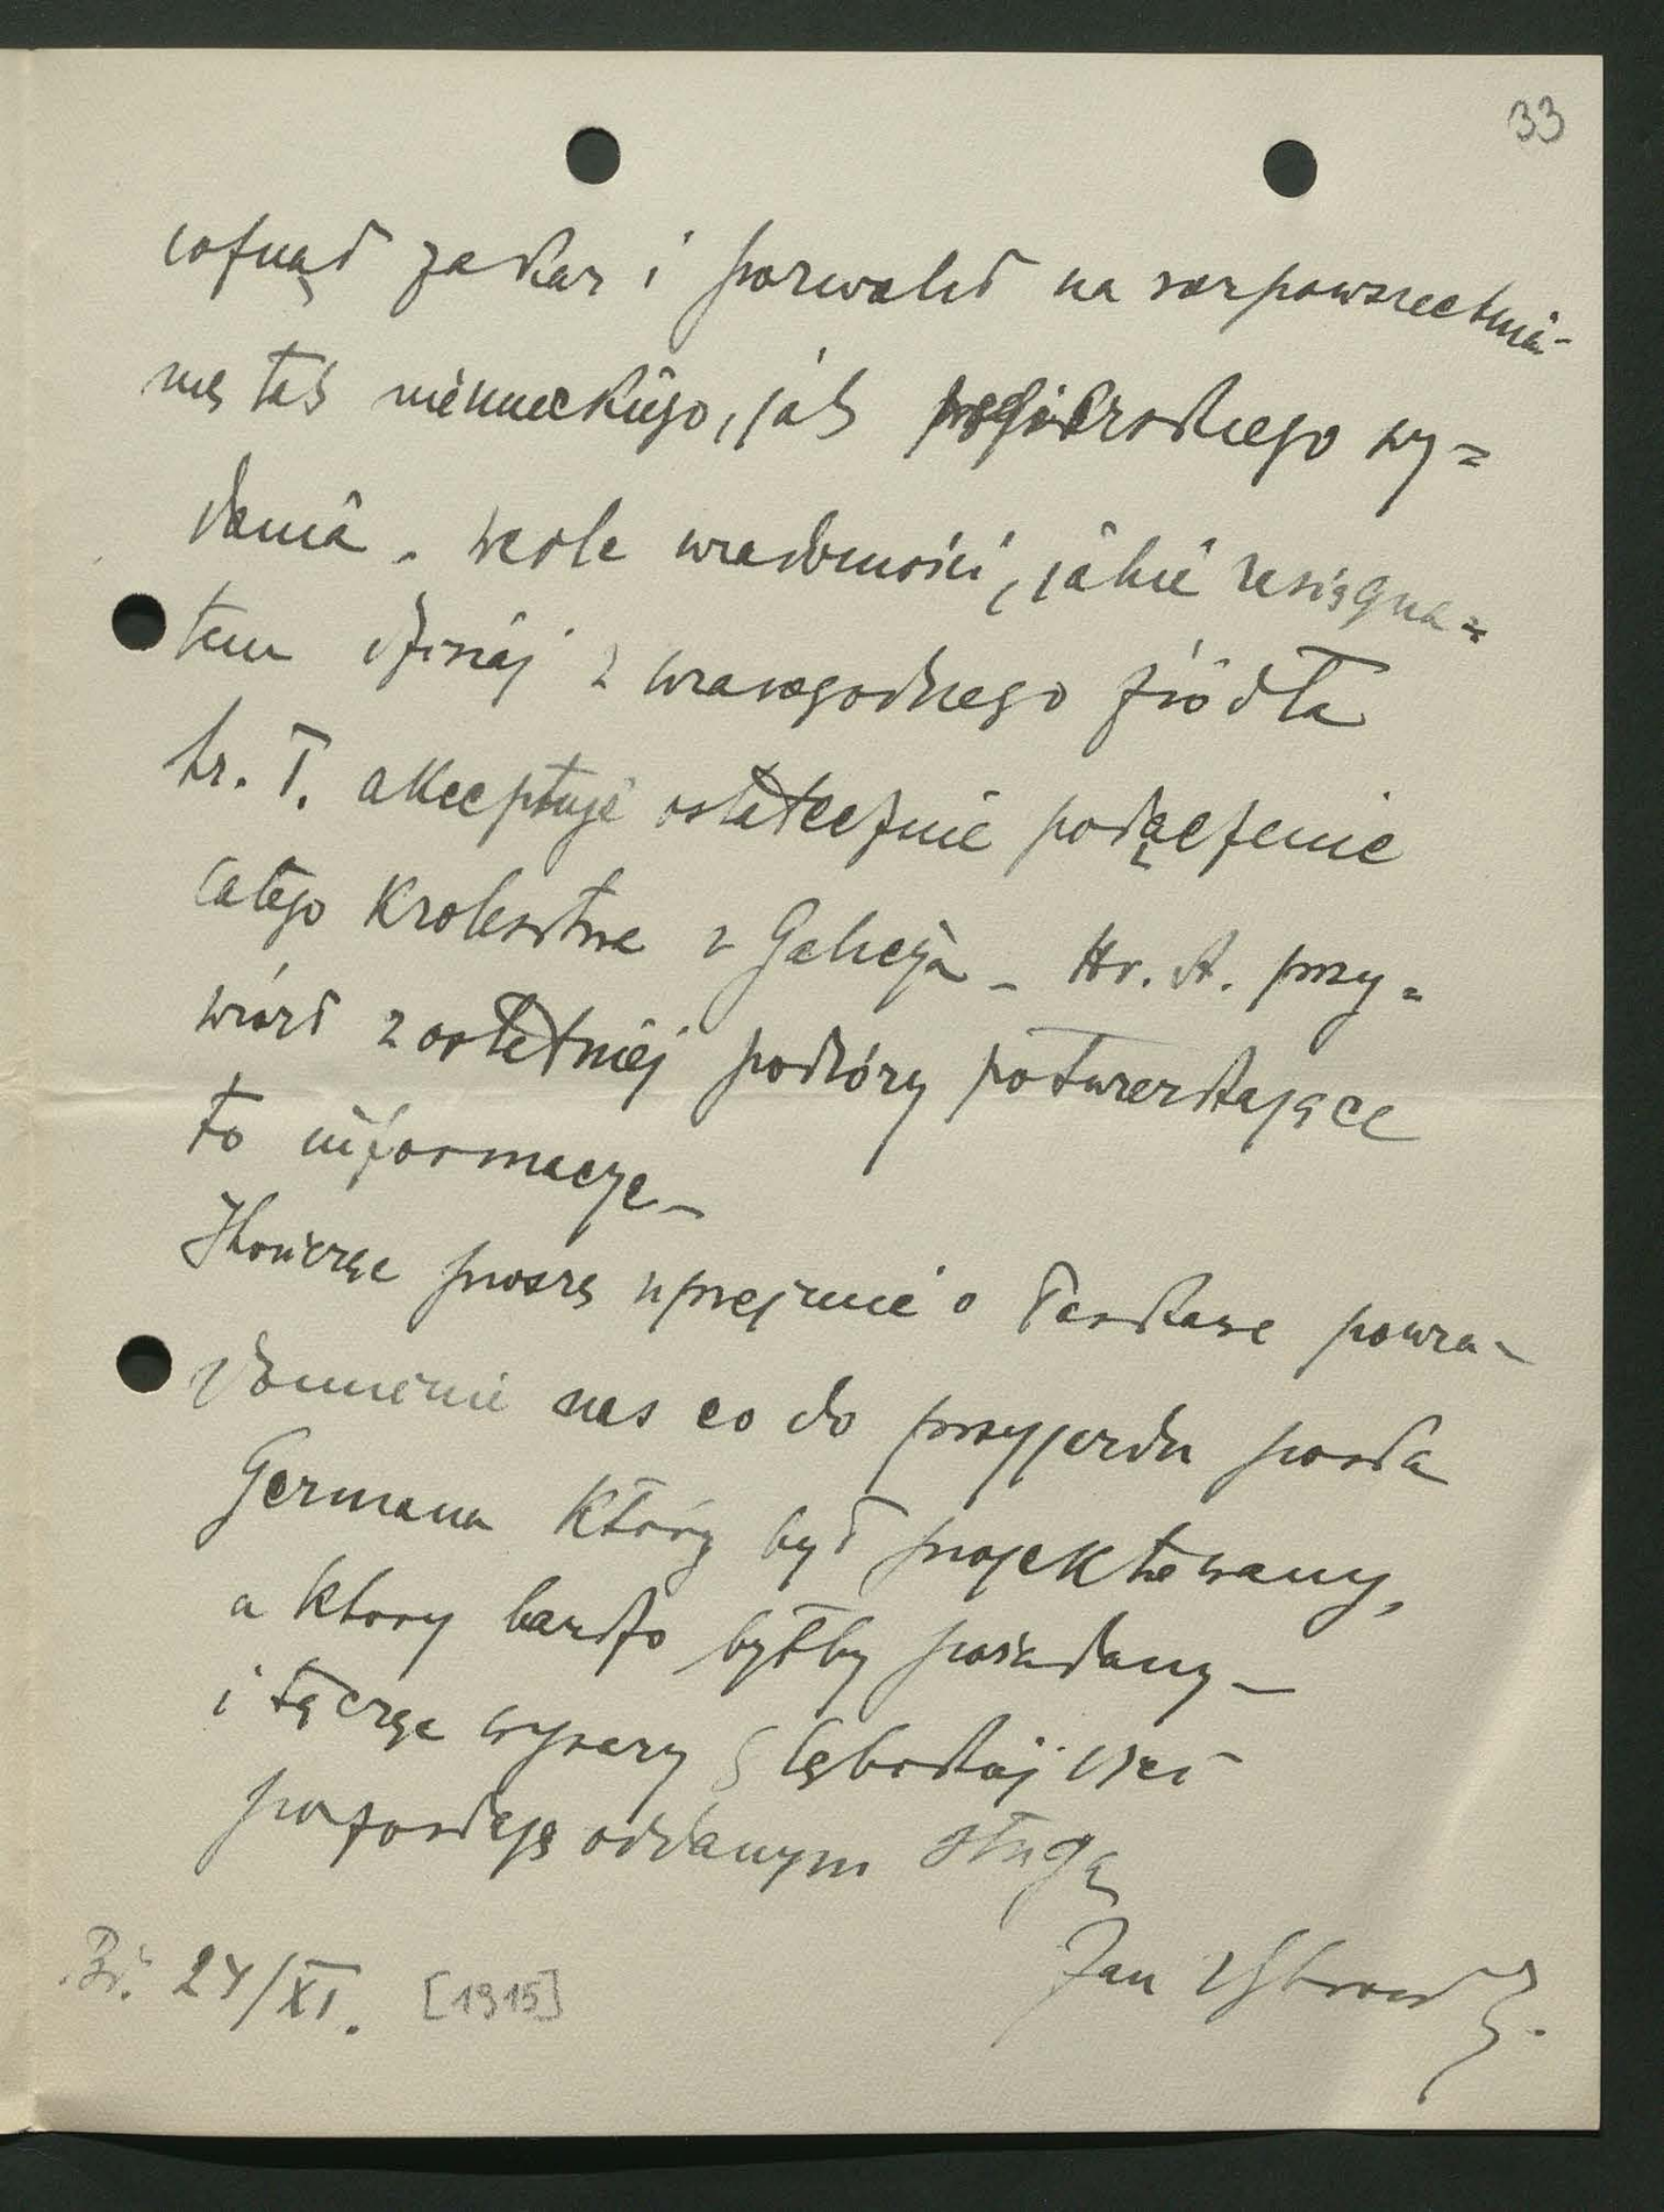 33
cofnął zakaz i pozwolił na rozpowszechnia-
nie tak niemieckiego, jak węgierskiego wy=
dania. Wedle wiadomości, jakie zasięgną=
łem dzisiaj z wiarogodnego źródła
hr. T. akceptuje ostatecznie połączenie
całego Królestwa z Galicją – Hr. A. przy=
wiózł z ostatniej podróży potwierdzające
to informacye –
Kończąc proszę uprzejmie o łaskawe powia-
domienie nas co do przyjazdu posła
Germana który był projektowany,
a ktory bardzo byłby pożądany –
i łącząc wyrazy głębokiej czci
pozostaję oddanym sługą
Jan
24/XI. [1915]